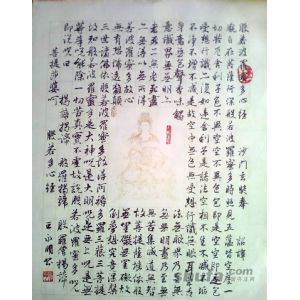 般若波羅蜜多心經 沙門玄奘奉 詔譯
觀自在菩薩行深般若波羅蜜多時照見五蘊皆空度
一切苦厄舍利子色不異空空不異色色即是空空即是色
受想行識亦復如是舍利子是諸法空相不生不滅不垢
不淨不增不減是故空中無色無受想行識無眼耳鼻舌
身意無色聲香味觸法無眼界乃至
無意識界無無明亦無無明盡乃至無
老死亦無老死盡無苦集滅道無智
亦無得以無所得故菩提薩埵依般
若波羅蜜多故心無罣礙無罣礙故
無有恐怖遠離顛倒夢想究竟涅槃
三世諸佛依般若波羅蜜多故得阿耨多羅三藐三菩提
故知般若波羅蜜多是大神咒是大明咒是無上咒是無
等等咒能除一切苦真實不虛故說般若波羅蜜多咒
即說咒曰 揭諦揭諦 般羅揭諦 般羅僧揭諦
菩提莎婆訶
般若多心經